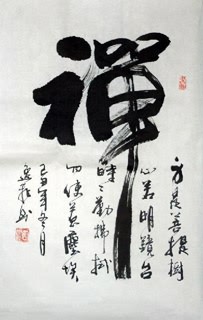 禅
身是菩提樹
心若明鏡台
時々勤拂拭
勿使惹塵埃
己丑年冬月